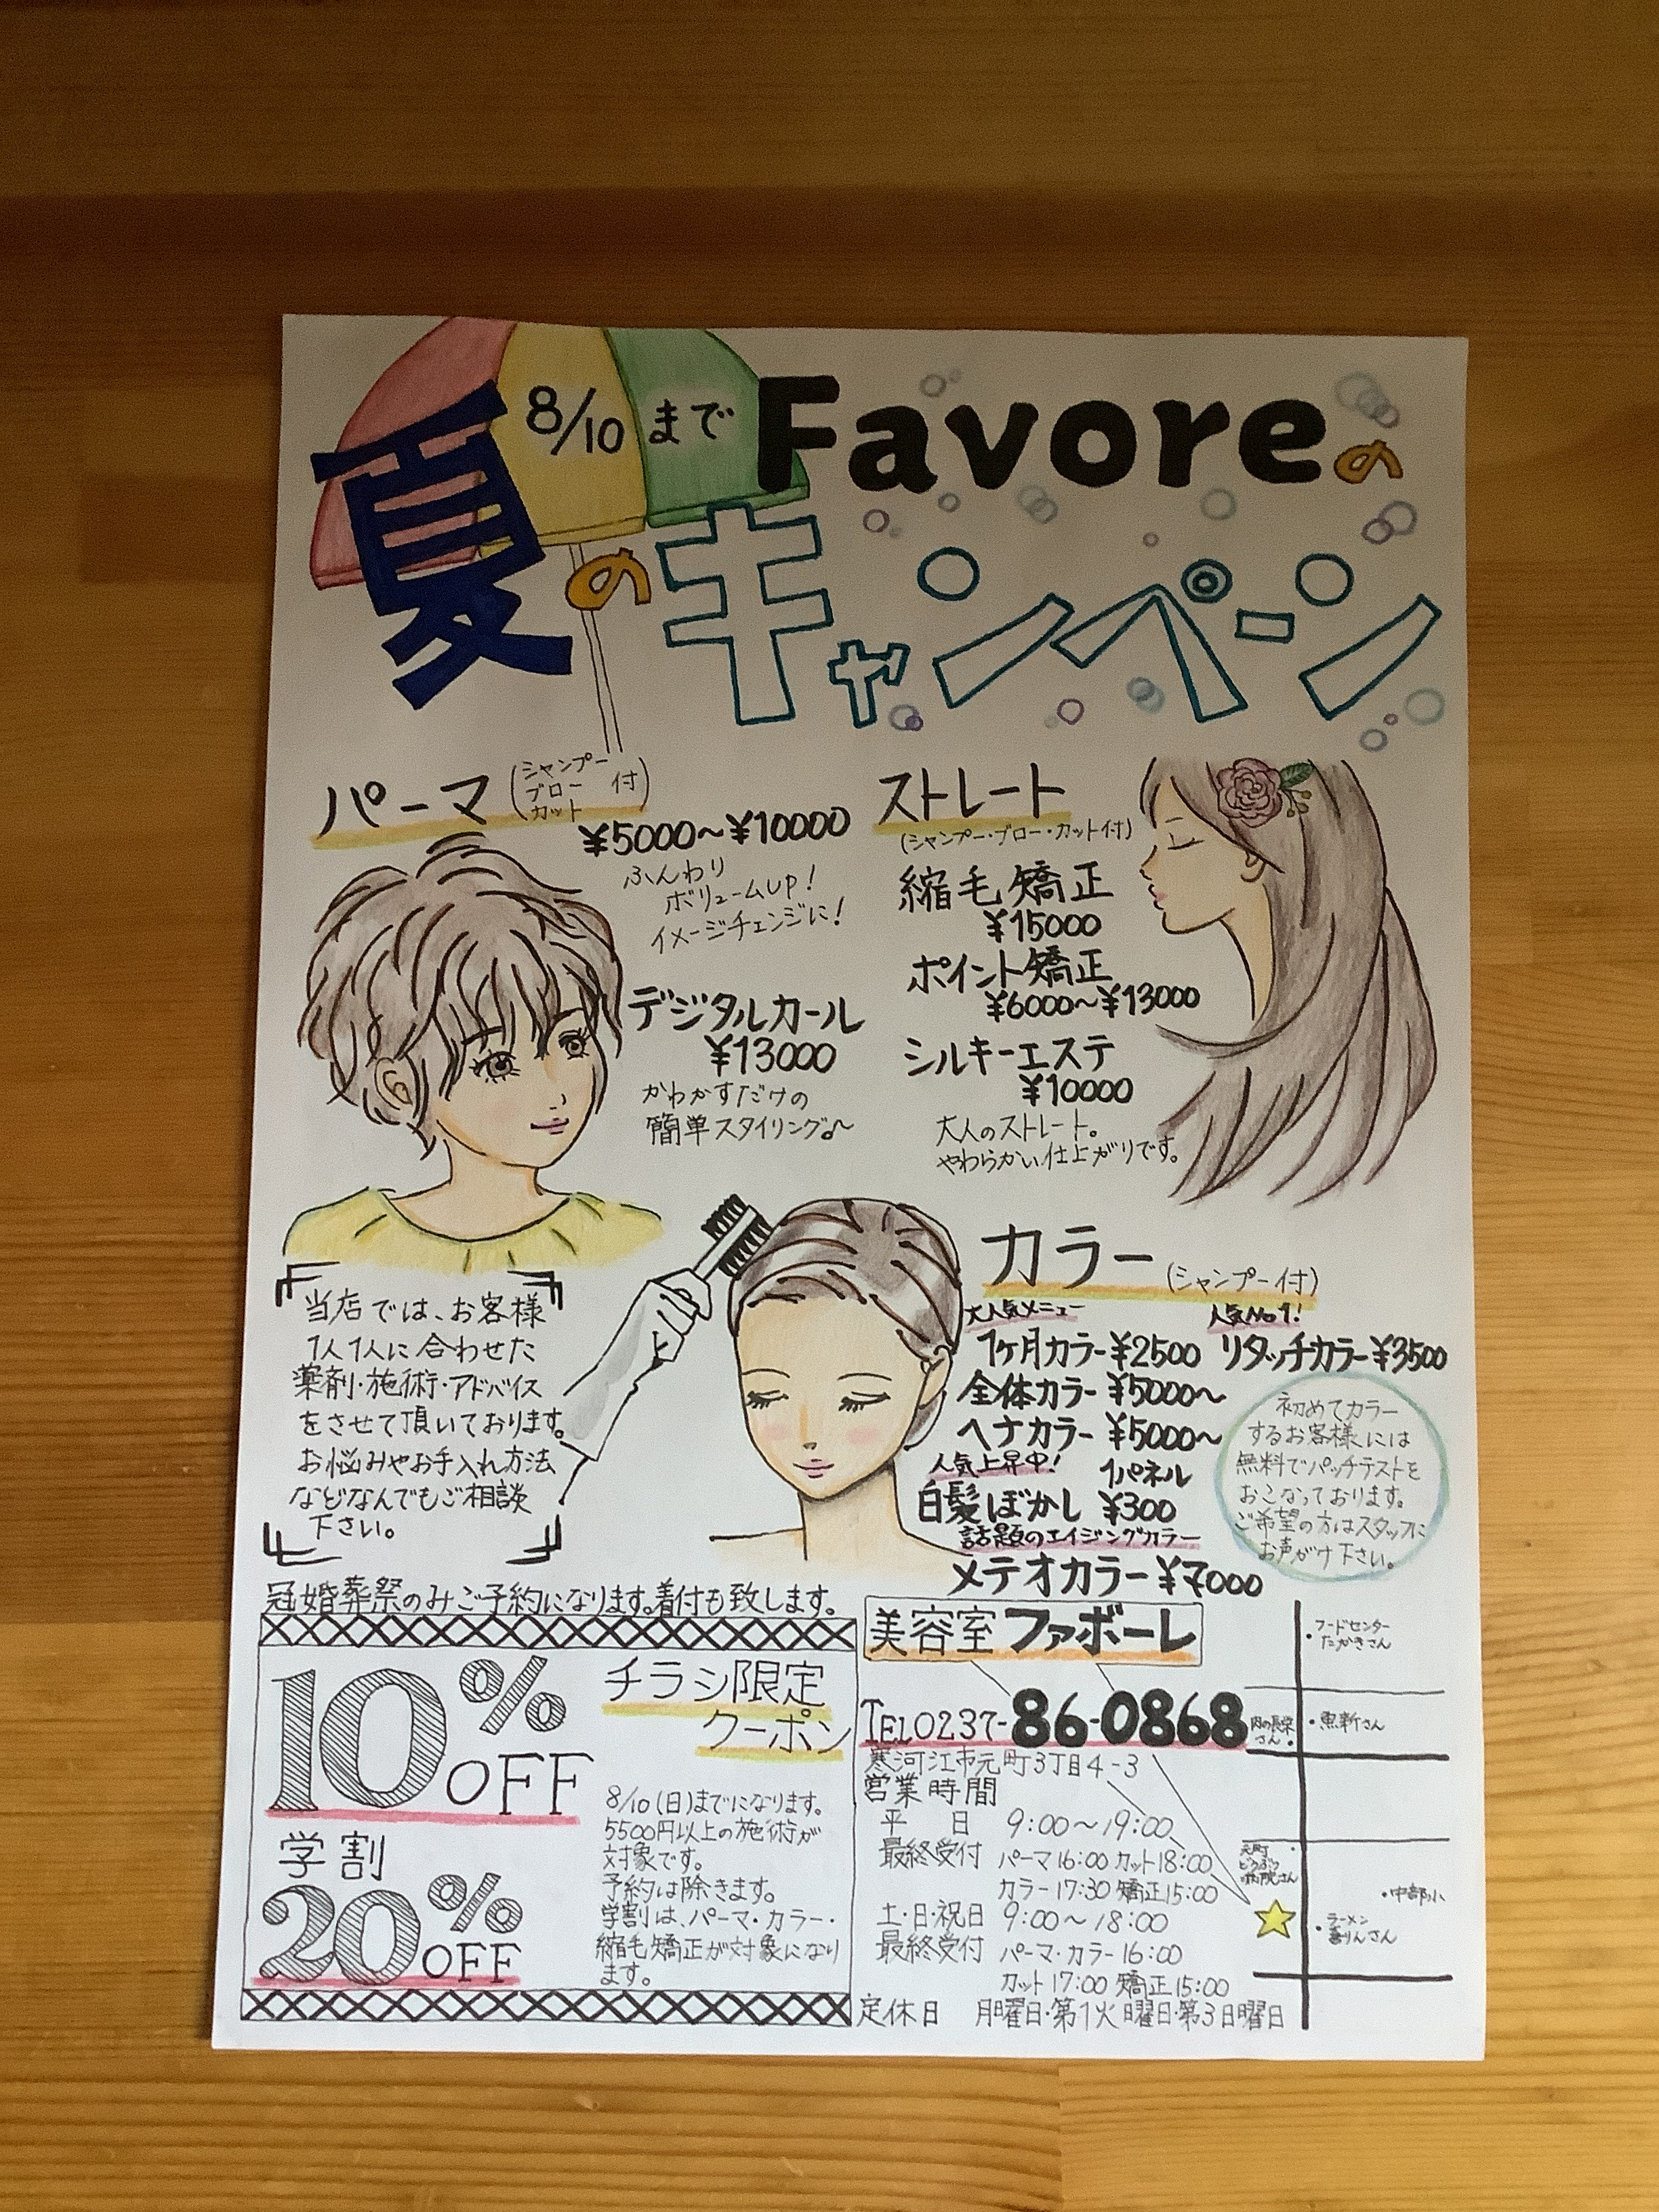 8/10 まで
Favoreの
夏のキャンペーン
パーマ(シャンプー ブロー カット 付)
¥5000〜¥10000
ふんわり
ボリュームUP!
イメージチェンジに!
デジタルカール
¥13000
かわかすだけの
簡単スタイリング♪〜
ストレート
(シャンプー・ブロー・カット付)
縮毛矯正
¥15000
ポイント矯正
¥6000〜¥13000
シルキーエステ
¥10000
大人のストレート。
やわらかい仕上がりです。
カラー(シャンプー付)
大人気メニュー
1ヶ月カラー¥2500
人気No1!
リタッチカラー¥3500
全体カラー ¥5000〜
ヘナカラー ¥5000〜
人気上昇中! 1パネル
白髪ぼかし ¥300
話題のエイジングカラー
メテオカラー¥7000
初めてカラー
するお客様には
無料でパッチテストを
おこなっております。
ご希望の方はスタッフに
お声がけ下さい。
当店では、お客様
1人1人に合わせた
薬剤・施術・アドバイス
をさせて頂いております。
お悩みやお手入れ方法
などなんでもご相談
下さい。
冠婚葬祭のみご予約になります。着付も致します。
10%OFF
学割
20%OFF
チラシ限定
クーポン
8/10(日)までになります。
5500円以上の施術が
対象です。
予約は除きます。
学割は、パーマ・カラー・
縮毛矯正が対象になり
ます。
美容室ファボーレ
TEL0237-86-0868
寒河江市元町3丁目4-3
営業時間
平 日 9:00〜19:00
最終受付 パーマ16:00 カット18:00
カラー17:30 矯正15:00
土・日・祝日 9:00〜18:00
最終受付 パーマ・カラー16:00
カット17:00 矯正15:00
定休日 月曜日・第1火曜日・第3日曜日
・フードセンター
たかきさん
肉の長栄
さん・
・魚新さん
元町
どうぶつ
病院さん
・中部小
・ラーメン